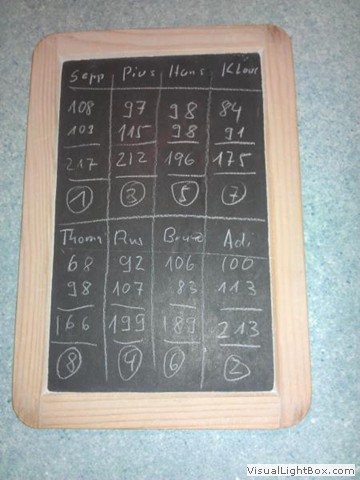 Sepp Pius Hans Klaus
108 97 98 84
109 115 98 91
217 212 196 175
1 3 5 7
Thom Pius Bruno Adi
68 92 106 100
98 107 83 113
166 199 189 213
8 4 6 2
VisualLightBox.com